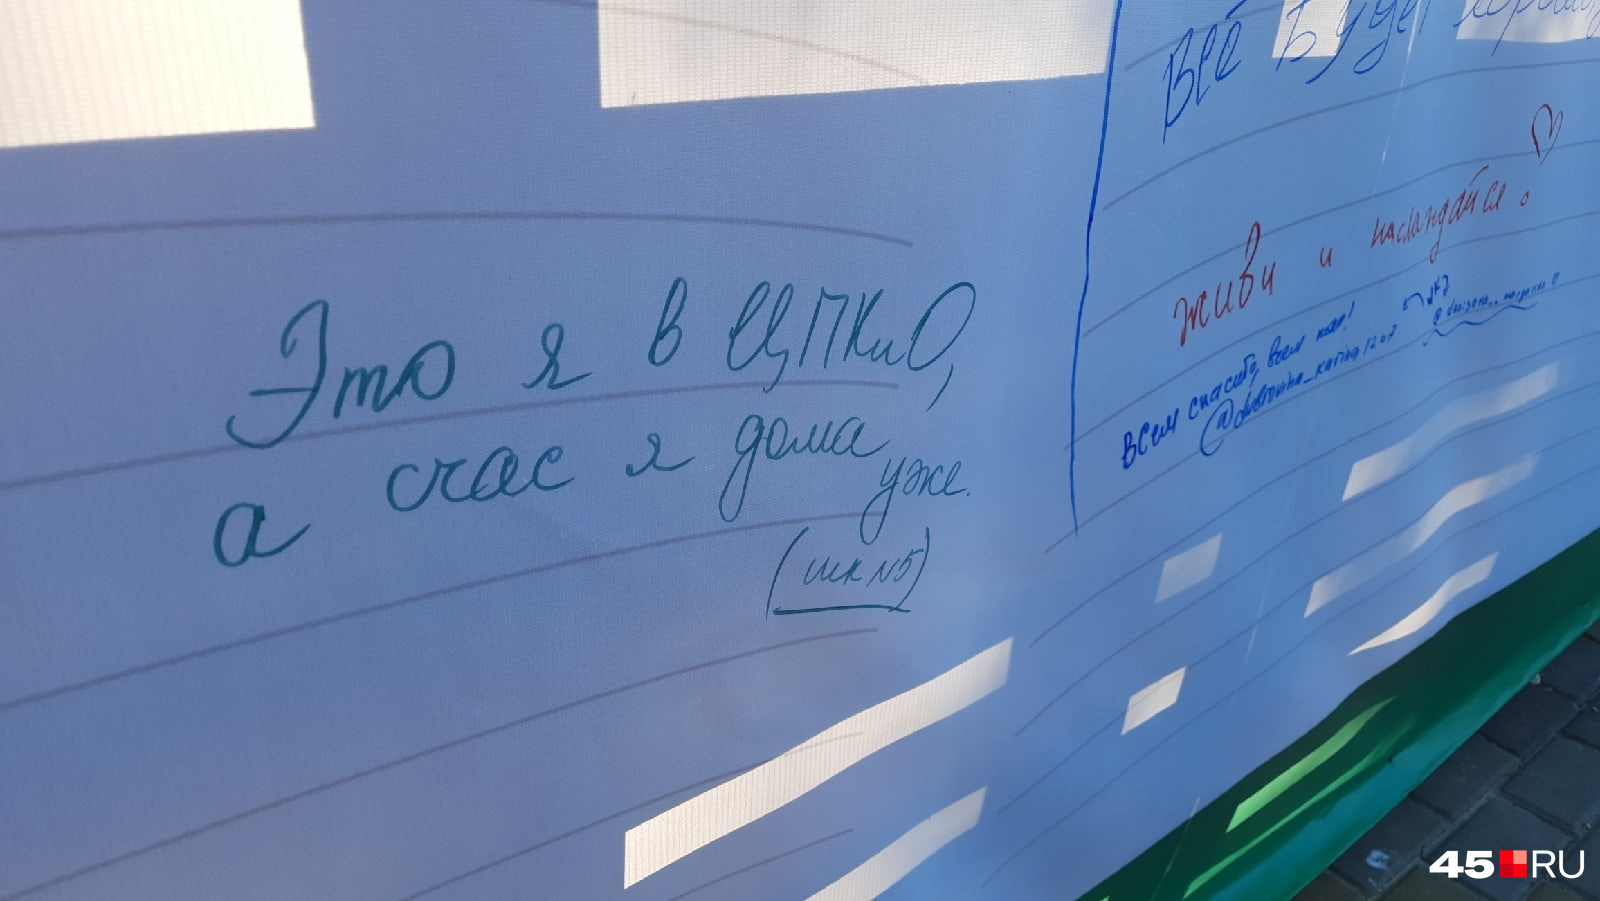 Это я в ЦПКиО,
а счас я дома
уже.
(шк №5)
Всё будет хорошо
живи и наслаждайся.
Всем спасибо, всем пока!
45 RU